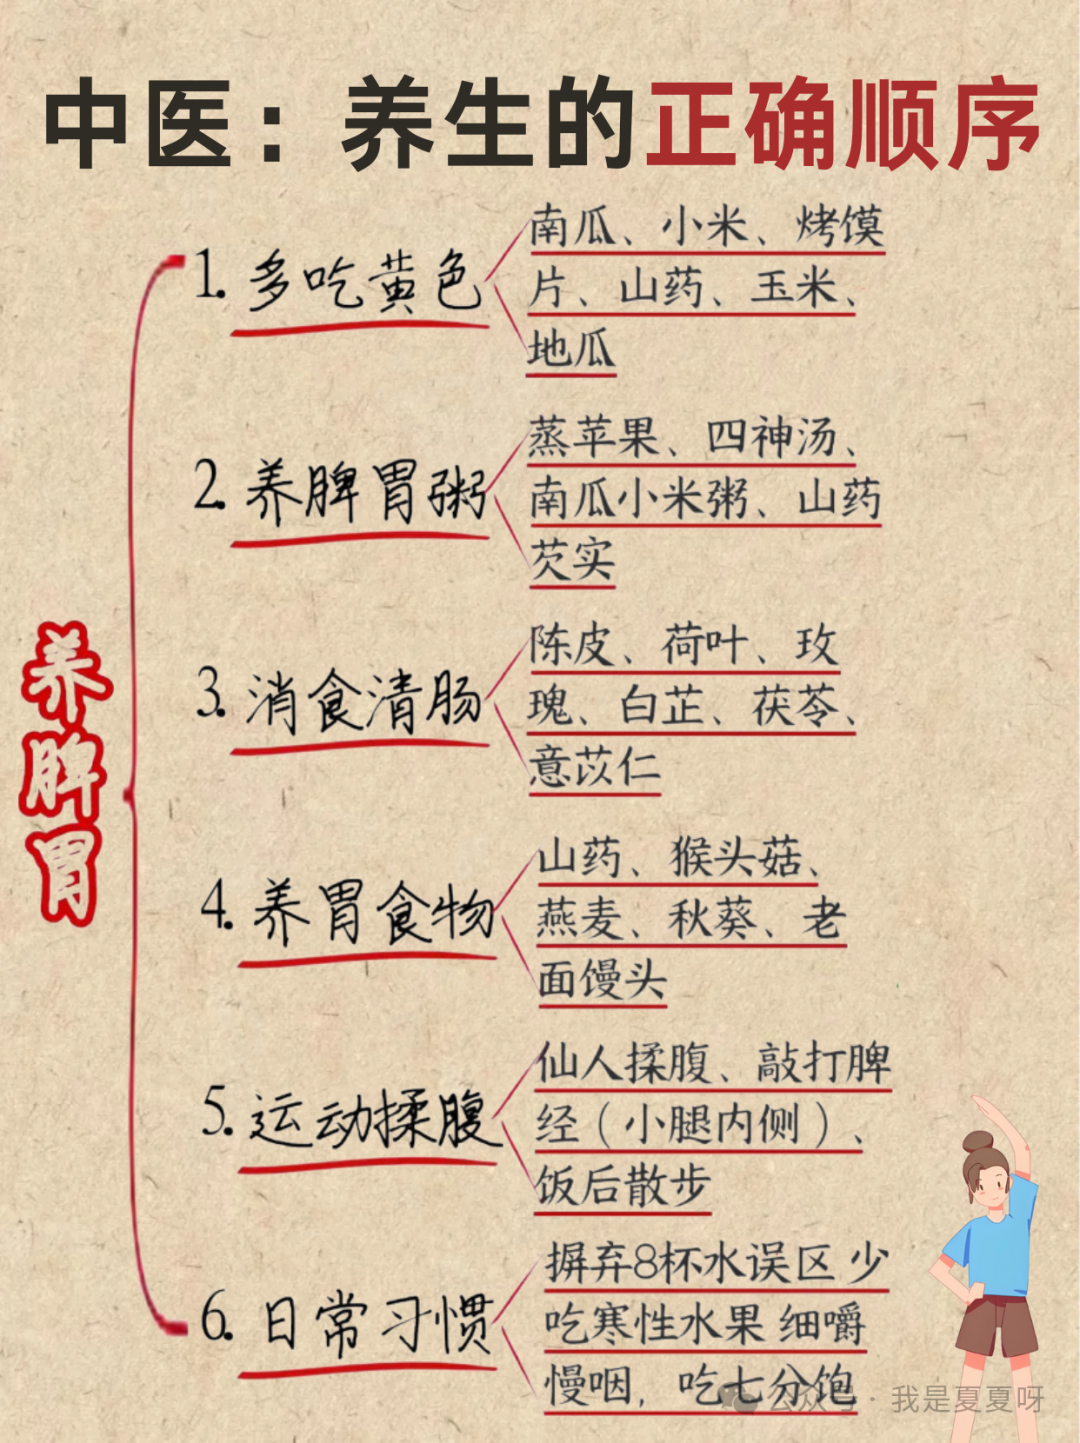 中医：养生的正确顺序
养脾胃
1. 多吃黄色
南瓜、小米、烤馍
片、山药、玉米、
地瓜
2. 养脾胃粥
蒸苹果、四神汤、
南瓜小米粥、山药
芡实
3. 消食清肠
陈皮、荷叶、玫
瑰、白芷、茯苓、
意苡仁
4. 养胃食物
山药、猴头菇、
燕麦、秋葵、老
面馒头
5. 运动揉腹
仙人揉腹、敲打脾
经（小腿内侧）、
饭后散步
6. 日常习惯
摒弃8杯水误区 少
吃寒性水果 细嚼
慢咽，吃七分饱
公众号·我是夏夏呀